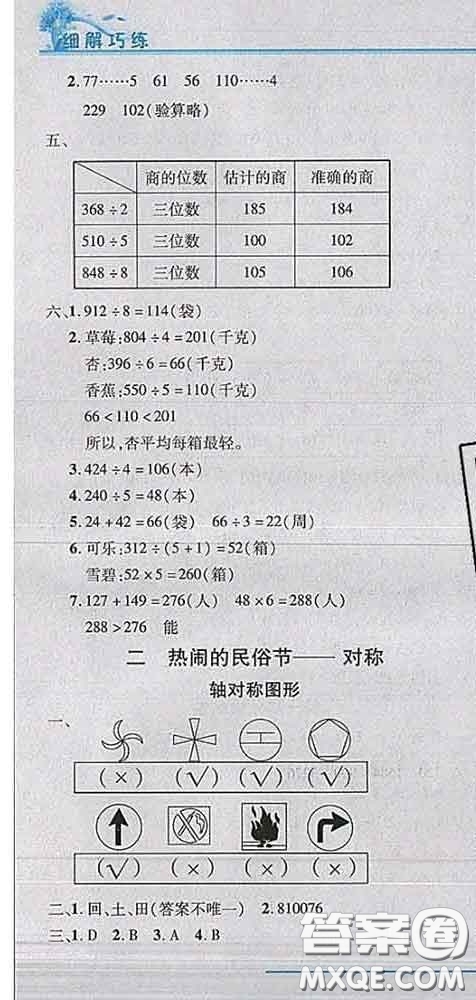 细解巧练
2.77……5 61 56 110……4
229 102(验算略)
五、
商的位数 估计的商 准确的商
368÷2 三位数 185 184
510÷5 三位数 100 102
848÷8 三位数 105 106
六、1.912÷8=114(袋)
2.草莓:804÷4=201(千克)
杏:396÷6=66(千克)
香蕉:550÷5=110(千克)
66<110<201
所以,杏平均每箱最轻。
3.424÷4=106(本)
4.240÷5=48(本)
5.24+42=66(袋) 66÷3=22(周)
6.可乐:312÷(5+1)=52(箱)
雪碧:52×5=260(箱)
7.127+149=276(人) 48×6=288(人)
288>276 能
二 热闹的民俗节——对称
轴对称图形
一、
(×) (√) (√) (√)
(√) (×) (×) (×)
二、1.回、土、田(答案不唯一) 2.810076
三、1.D 2.B 3.A 4.B
答案圈
MXQE.COM